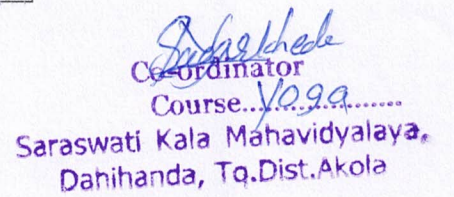 Co-ordinator
Course...Yoga..........
Saraswati Kala Mahavidyalaya,
Dahihanda, Tq.Dist.Akola